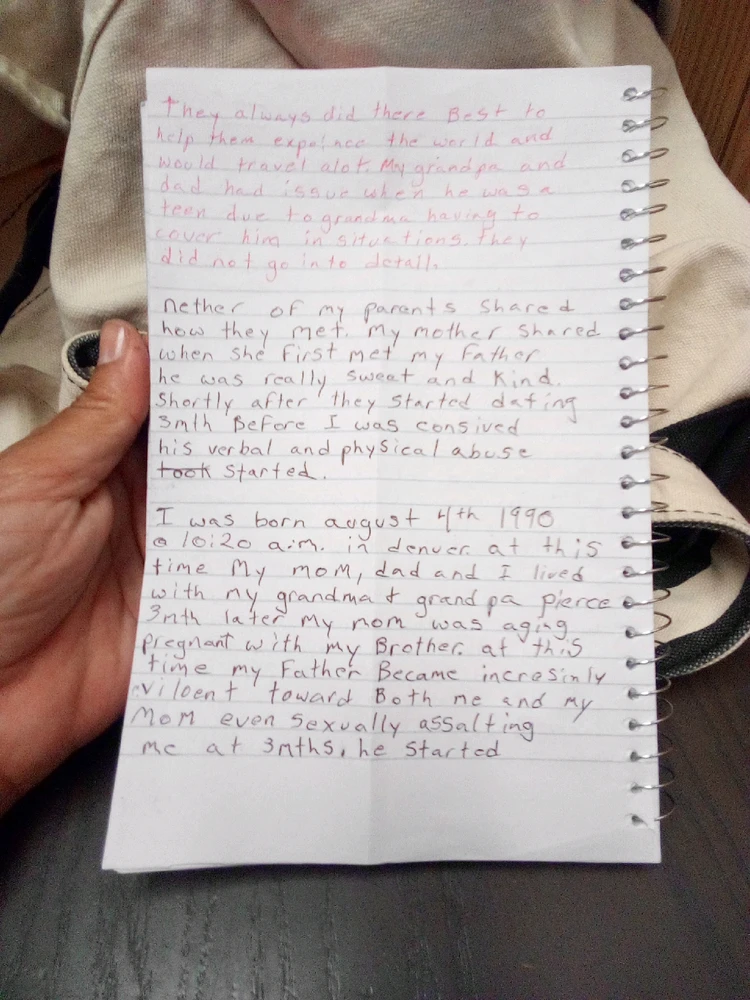 They always did there Best to
help them expeince the world and
would travel alot. My grandpa and
dad had issue when he was a
teen due to grandma having to
cover him in situations. they
did not go into detail.
nether of my parents shared
how they met. My mother shared
when she first met my Father
he was really sweat and kind.
Shortly after they started dating
3mth Before I was consived
his verbal and physical abuse
took started.
I was born august 4th 1990
@ 10:20 a.m. in denver. at this
time My mom, dad and I lived
with my grandma & grandpa pierce
3mth later my mom was aging
pregnant with my Brother. at this
time my Father Became incresinly
viloent toward Both me and my
Mom even sexually assalting
me at 3mths. he started